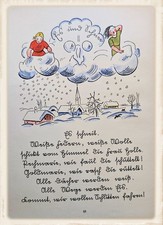 Es schneit.
Weiße Federn, weiße Wolle
schickt vom Himmel die Frau Holle.
Pechmarie, wie faul sie schüttelt!
Goldmarie, wie rasch sie rüttelt!
Alle Dächer werden weiß.
Alle Wege werden Eis.
Kommt, wir wollen Schlitten fahren!